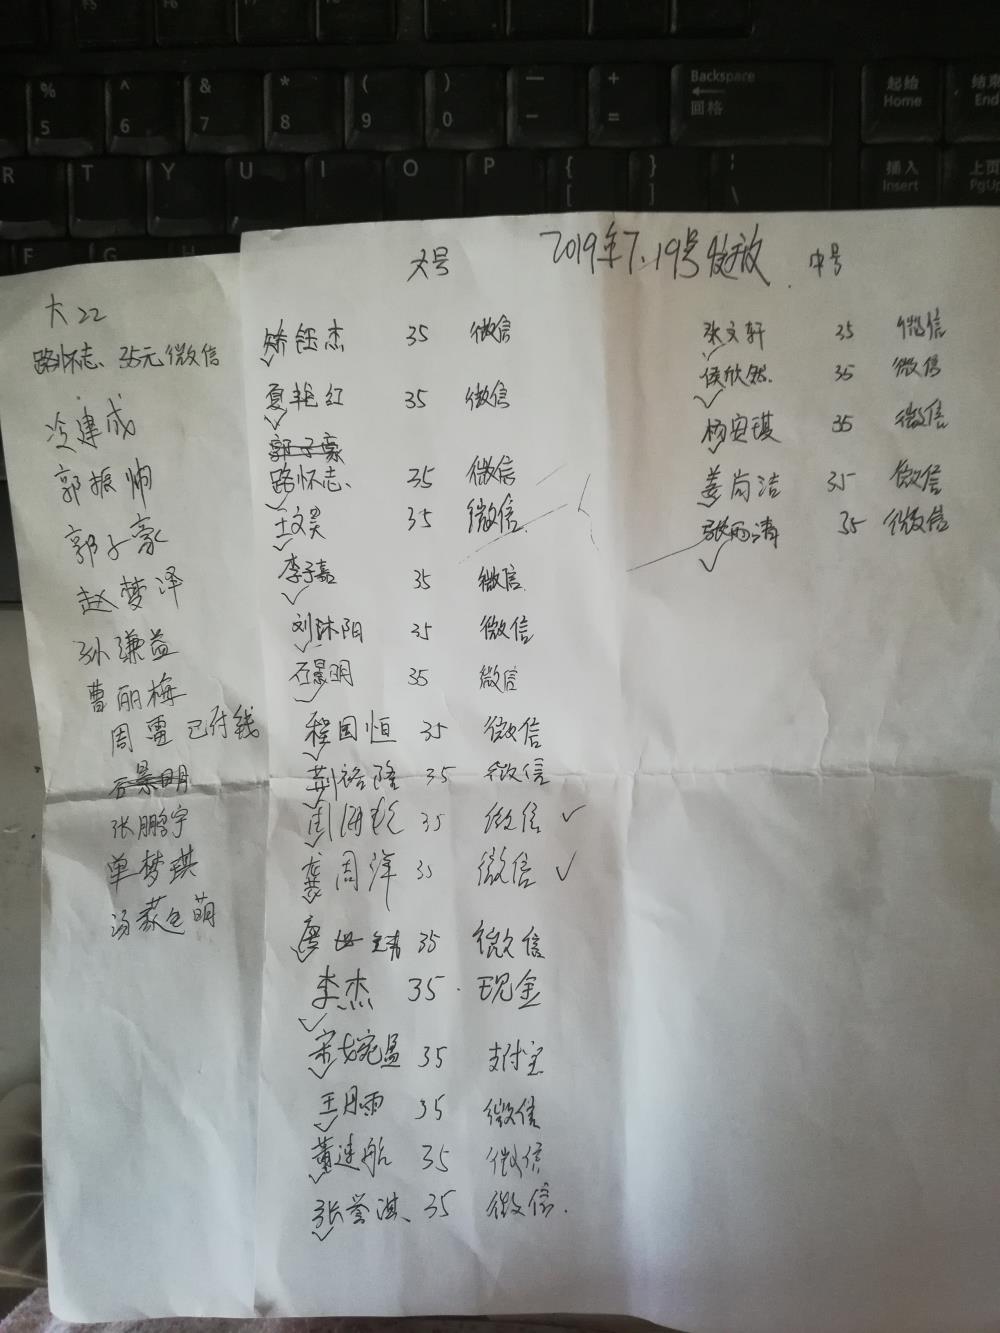 % ^ & * ( ) — + Backspace 起始
5 6 7 8 9 0 - = 回格 Home End
R T Y U I O P { } | 插入 上页
[ ] \ Insert PgUp
F G
2019年7.19号发放
大22
路怀志、35元微信
冷建成
郭振帅
郭子豪
赵梦泽
孙谦益
曹丽梅
周雷 已付钱
石景明
张鹏宇
单梦琪
大号
钰杰 35 微信
夏艳红 35 微信
郭子豪
路怀志、 35 微信
王文昊 35 微信.
李子嘉 35 微信.
刘沐阳 35 微信
石景明 35 微信
程国恒 35 微信
荆裕隆 35 微信
周 35 微信 ✓
龚周洋 35 微信 ✓
35 微信
李杰 35. 现金
宋婉盈 35 支付宝
王丹雨 35 微信
董建航 35 微信
张誉淇、 35 微信.
中号
张文轩 35 微信
侯欣然. 35 微信
杨安琪 35 微信
姜尚洁 35 微信
张雨清 35 微信